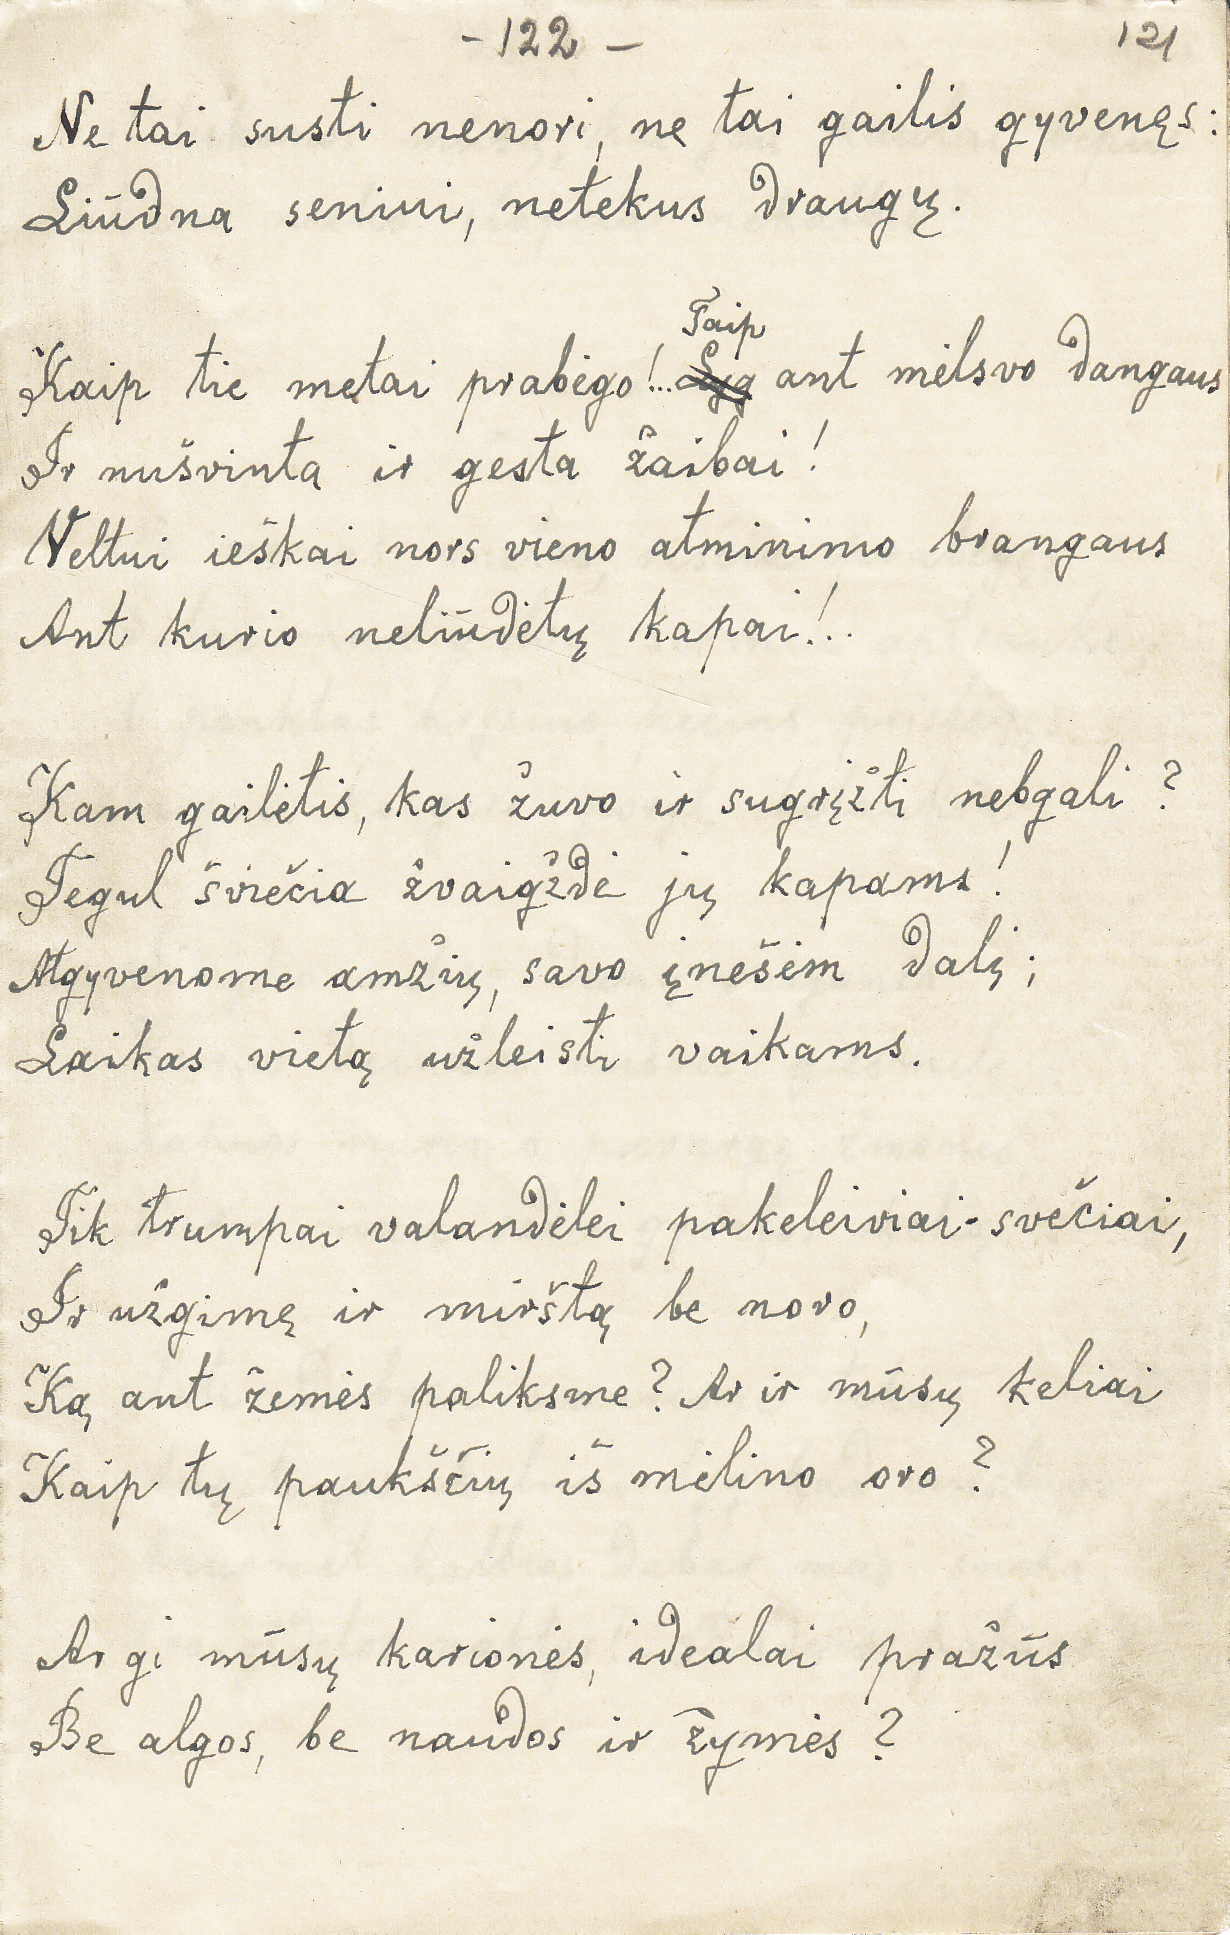 - 122 -
121
Ne tai susti nenori, ne tai gailis gyvenęs:
Liūdna seniui, netekus draugų.
Taip
Kaip tie metai prabėgo!.. Lyg ant mėlsvo dangaus
Ir nušvinta ir gęsta žaibai!
Veltui ieškai nors vieno atminimo brangaus
Ant kurio neliūdėtų kapai!..
Kam gailėtis, kas žuvo ir sugrįžti nebgali?
Tegul šviečia žvaigždė jų kapams!
Atgyvenome amžių, savo įnešėm dalį;
Laikas vietą užleisti vaikams.
Tik trumpai valandėlei pakeleiviai-svečiai,
Ir užgimę ir mirštą be noro,
Ką ant žemės paliksme? Ar ir mūsų keliai
Kaip tų paukščių iš mėlino oro?
Ar gi mūsų karionės, idealai pražūs
Be algos, be naudos ir žymės?